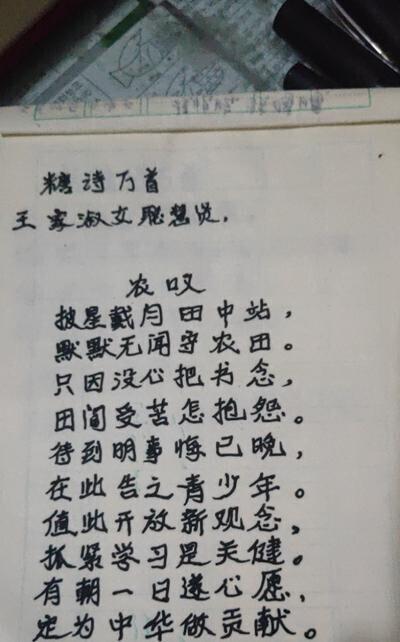 糖诗万首
王家淑女聪慧贤,
农叹
披星戴月田中站,
默默无闻守农田。
只因没心把书念,
田间受苦怎抱怨。
待到明事悔已晚,
在此告之青少年。
值此开放新观念,
抓紧学习是关健。
有朝一日遂心愿,
定为中华做贡献。